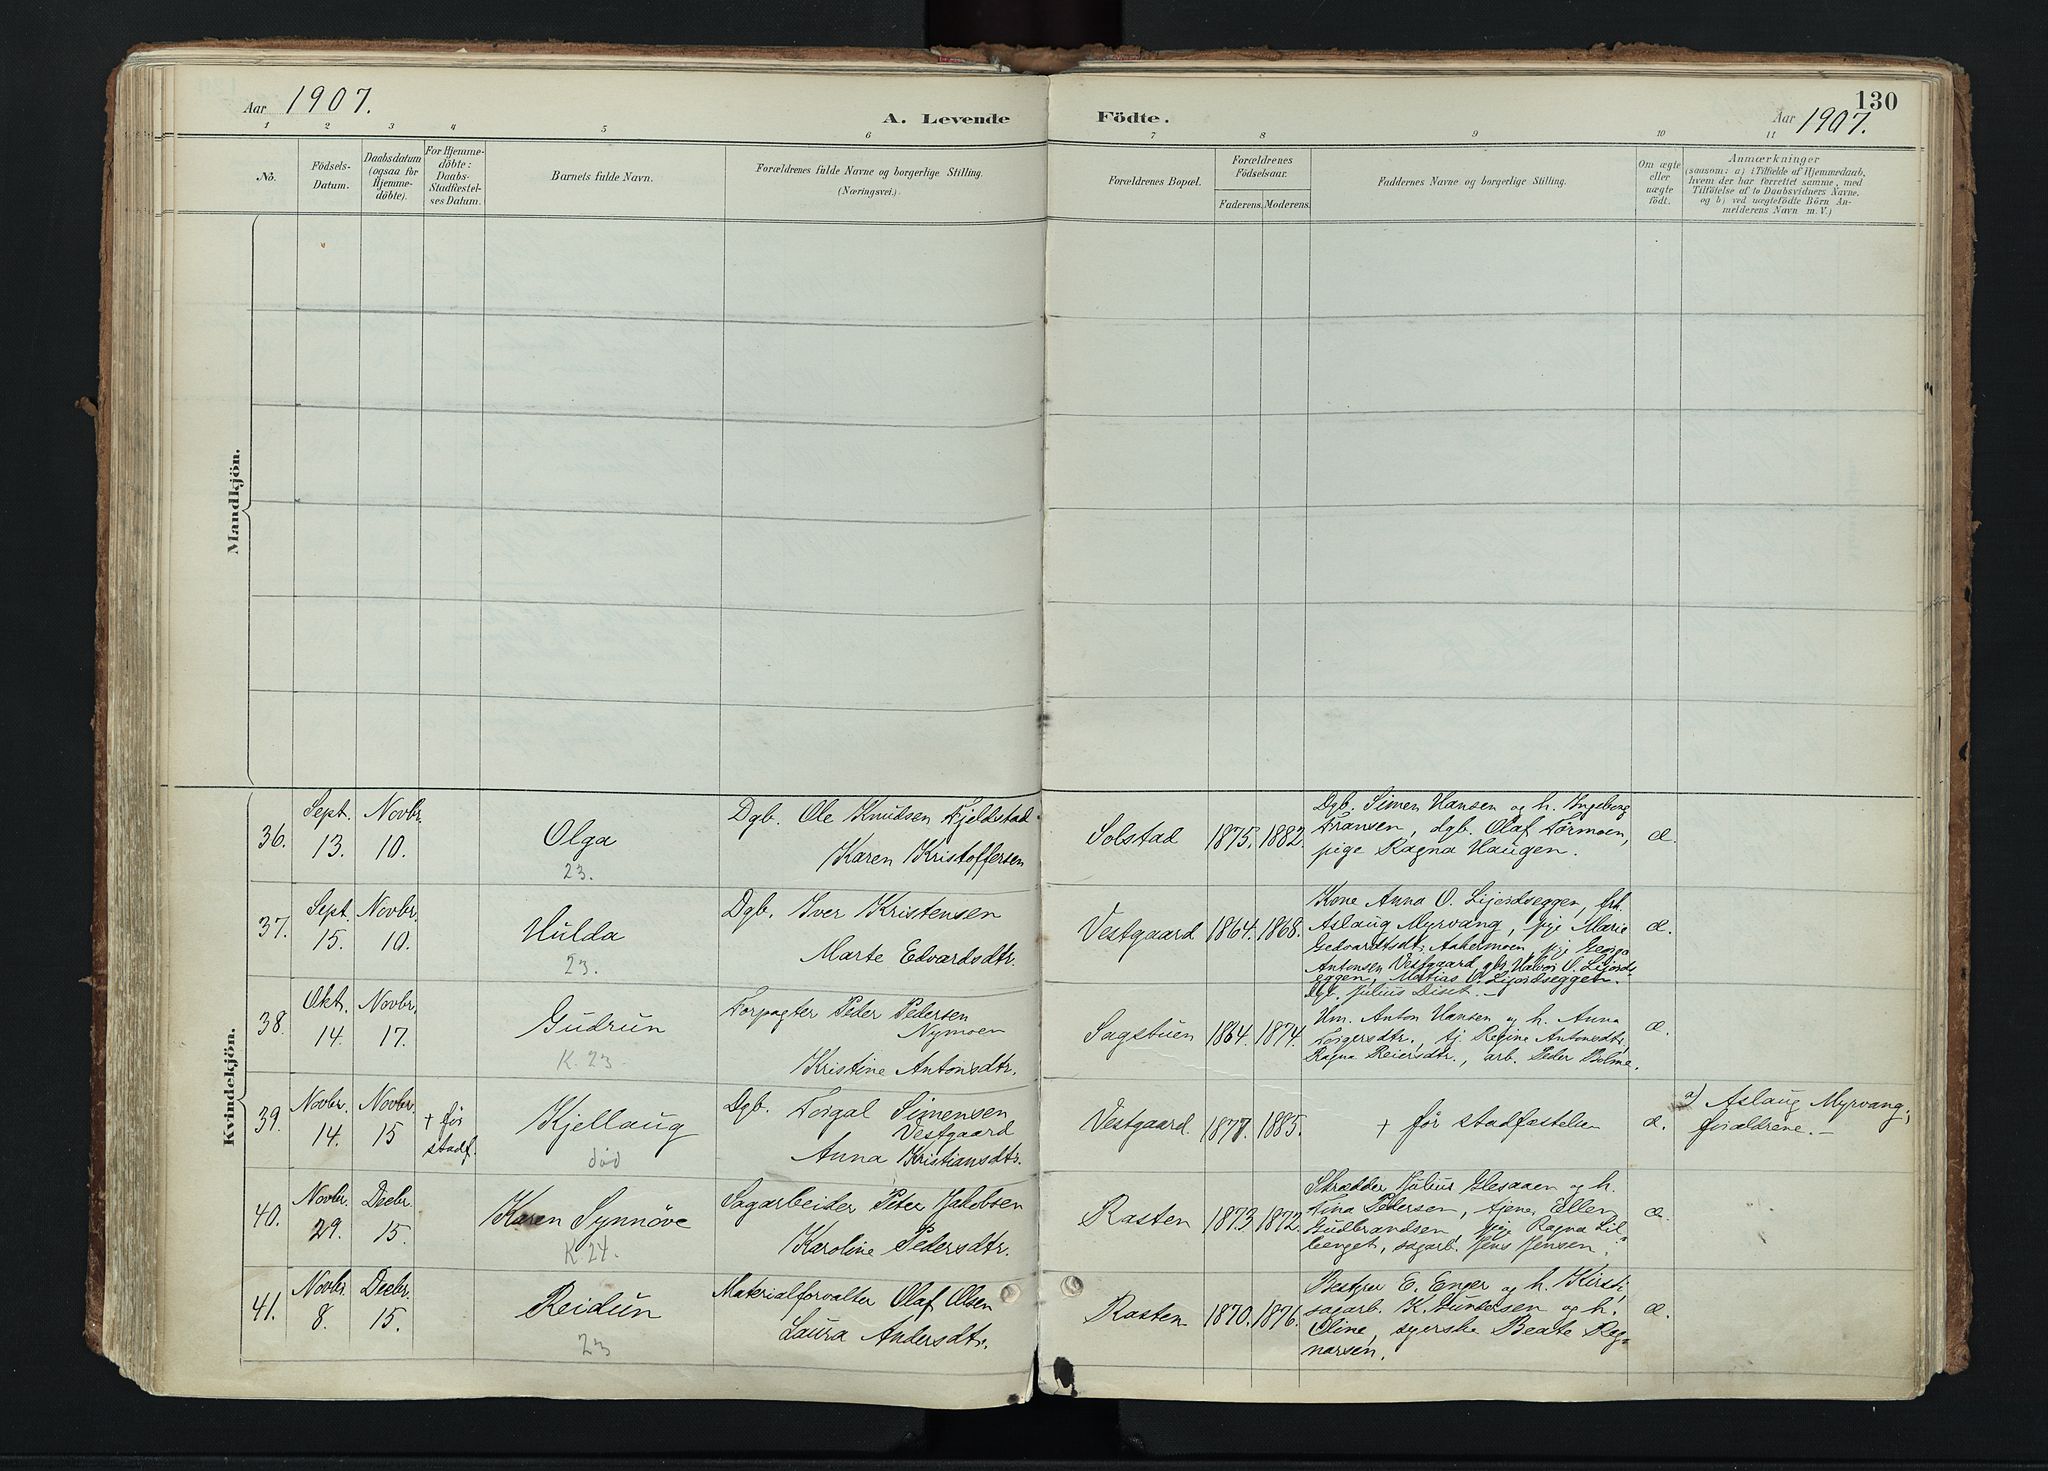 Aar 1907.
A. Levende Födte.
130
Aar 1907.
1 2 3 4 5 6 7 8 9 10 11
No.
Födsels-
Datum.
Daabsdatum
(ogsaa for
Hjemme-
döbte).
For Hjemme-
döbte:
Daabs-
Stadfæstel-
ses Datum.
Barnets fulde Navn.
Forældrenes fulde Navne og borgerlige Stilling.
(Næringsvei.)
Forældrenes Bopæl.
Forældrenes
Födselsaar.
Faderens. Moderens.
Faddernes Navne og borgerlige Stilling.
Om ægte
eller
uægte
födt.
Anmærkninger
(saasom: a) i Tilfælde af Hjemmedaab,
hvem der har forrettet samme, med
Tilföielse af to Daabsvidners Navne.
og b) ved uægtefödte Börn An-
melderens Navn m. V.)
Mandkjön.
Kvindekjön.
36.
Sept.
13.
Novbr.
10.
Olga
23.
Dgb. Ole Knudsen Fjeldstad
Karen Kristoffersen
Solstad
1875. 1882.
Dgb. Simen Hansen og h. Ingeborg
Fransen, dgb. Olaf Tørmoen,
pige Ragna Haugen.
æ.
37.
Sept.
15.
Novbr.
10.
Hulda
23.
Dgb. Iver Kristensen
Marte Edvardsdtr.
Vestgaard
1864. 1868.
Kone Anna O. Lijordseggen, frk.
Aslaug Myrvang, pige Marie
Gedvardtsdt. Aakermoen, pige Georga
Antonsen Vestgaard, gbr. Halvor O. Lijords-
eggen, Matias O. Lijordseggen.
Dgb. Julius Diset. –
æ.
38.
Okt.
14.
Novbr.
17.
Gudrun
K. 23.
Forpagter Peder Pedersen
Nymoen
Kristine Antonsdtr.
Sagstuen
1864. 1874.
Hm. Anton Hansen og h. Anna
Torgersdtr., tj. Regine Antonsdtr,
Ragna Reiersdtr., arb. Peder Bolme.
æ.
39.
Novbr.
14.
Novbr.
15
+ før
stadf.
Kjellaug
død
Dgb. Torgal Simensen
Vestgaard
Anna Kristiansdtr.
Vestgaard
1877. 1885.
+ før stadfæstelsen
æ.
a) Aslaug Myrvang;
forældrene. –
40.
Novbr.
29.
Decbr.
15.
Karen Synnøve
K 24.
Sagarbeider Peter Jakobsen
Karoline Pedersdtr.
Rasten
1873. 1872.
Skrædder Julius Glesaaen og h.
Tina Pedersen, tjener Ellen
Gudbrandsen, pige Ragna Lil-
benget, sagarb. Jens Jensen.
æ.
41.
Novbr.
8.
Decbr.
15.
Reidun
23
Materialforvalter Olaf Olsen
Laura Andersdtr.
Rasten
1870. 1876.
Bestyrer E. Enger og h. Kirsti,
sagarb. K. Gundersen og h.
Oline, syerske Beate Reg-
narsen.
æ.